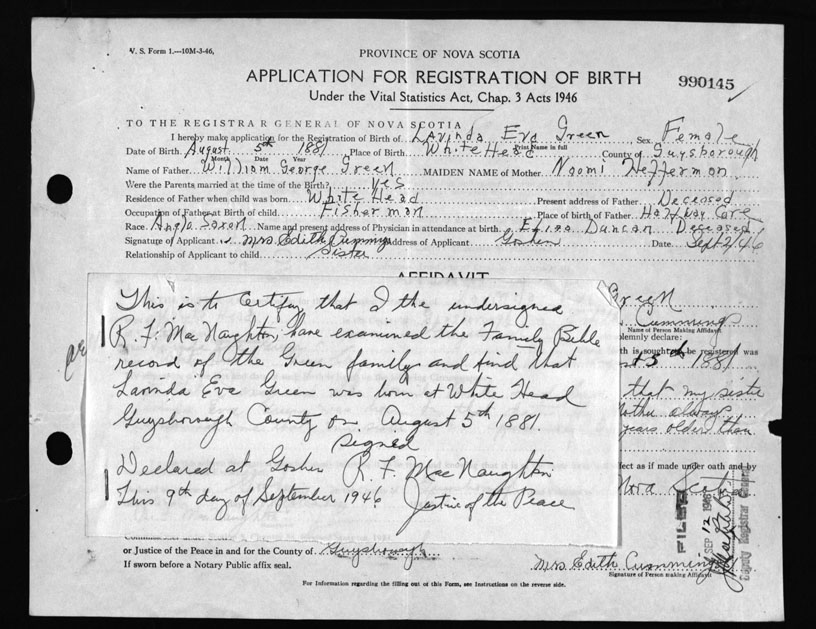 V. S. Form 1.—10M-3-46,
PROVINCE OF NOVA SCOTIA
APPLICATION FOR REGISTRATION OF BIRTH
990145
Under the Vital Statistics Act, Chap. 3 Acts 1946
TO THE REGISTRAR GENERAL OF NOVA SCOTIA
I hereby make application for the Registration of Birth of Lavinda Eva Green Sex Female
Print Name in full
Date of Birth August 5th 1881 Place of Birth White Head County of Guysborough
Month Date Year
Name of Father William George Green MAIDEN NAME of Mother Naomi Hefferman
Were the Parents married at the time of the Birth? Yes
Residence of Father when child was born White Head Present address of Father Deceased
Occupation of Father at Birth of child Fisherman Place of birth of Father Halfway Cove
Race Anglo Saxon Name and present address of Physician in attendance at birth Eliza Duncan Deceased
Signature of Applicant Mrs Edith Cummings Address of Applicant Goshen Date Sept 2/46
Relationship of Applicant to child Sister
AFFIDAVIT
This is to certify that I the undersigned
R. F. MacNaughton have examined the Family Bible
record of the Green family and find that
Lavinda Eva Green was born at White Head
Guysborough County on August 5th 1881.
Signed
Declared at Goshen R. F. MacNaughton
This 9th day of September 1946 Justice of the Peace
Green
Cumming
Name of Person Making Affidavit
solemnly declare:
th is sought to be registered was
5th 1881
that my sister
Mother always
years older than
fect as if made under oath and by
Nova Scotia
FILED
SEP 12 1946
Deputy Registrar General
or Justice of the Peace in and for the County of Guysborough
If sworn before a Notary Public affix seal.
Mrs. Edith Cumming
Signature of Person making Affidavit
For Information regarding the filling out of this Form, see Instructions on the reverse side.